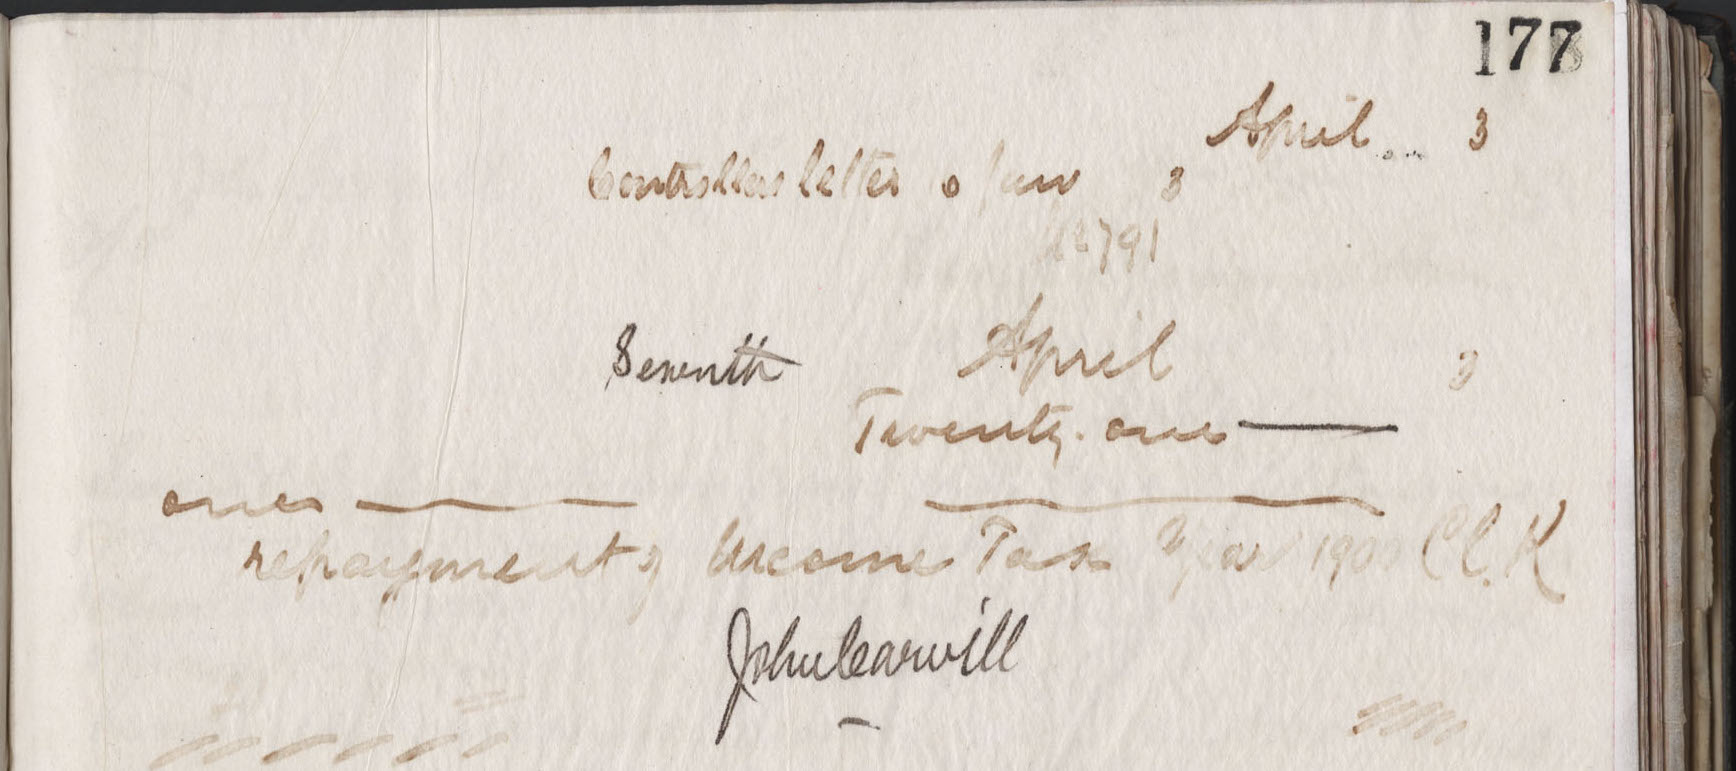 177
April 3
Controllers letter of Jan 3
No 791
Seventh April 3
Twenty-one
one
repayment of Income Tax Year 1900 C C. K
John Carvill